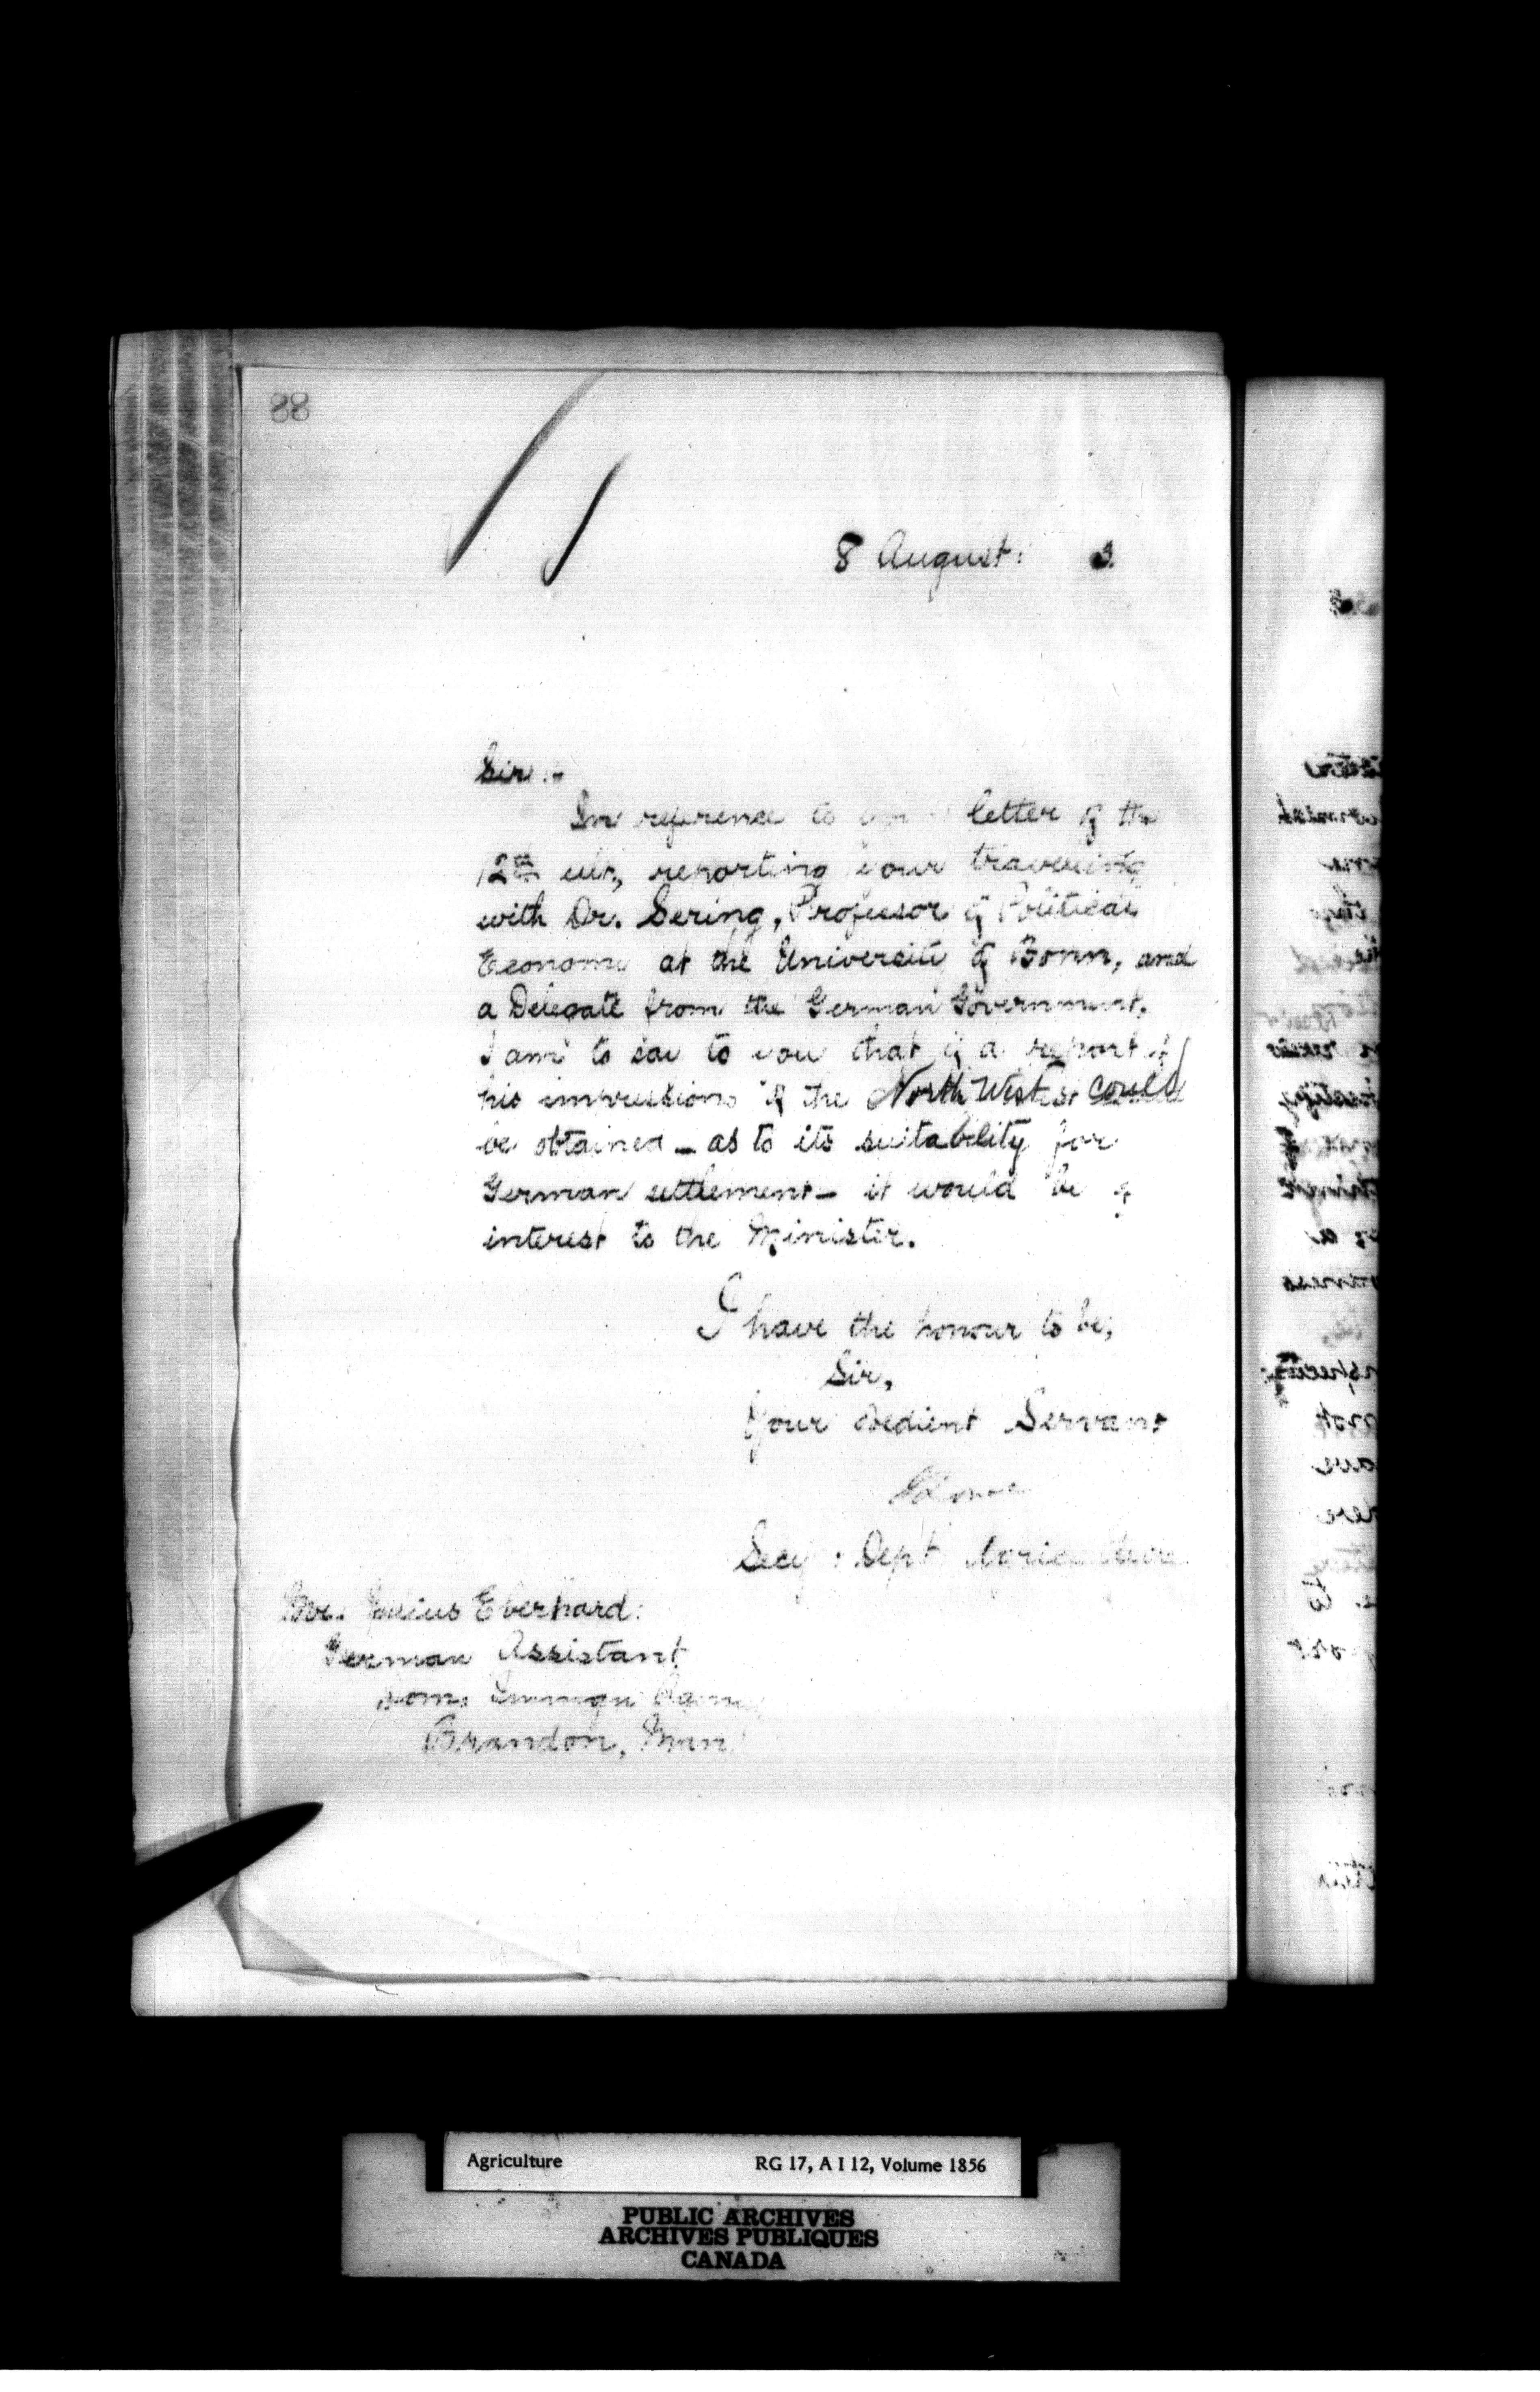 88
8 August: 3.
Sir:-
In reference to your letter of the
12th ult., reporting your travelling
with Dr. Sering, Professor of Political
Economy at the University of Bonn, and
a Delegate from the German Government,
I am to say to you that if a report of
his impressions of the North West could
be obtained - as to its suitability for
German settlement - it would be of
interest to the Minister.
I have the honour to be,
Sir,
Your obedient Servant
Secy: Dept Agriculture
Mr. Julius Eberhard:
German Assistant
Dom. Immign Agency
Brandon, Man.
Agriculture RG 17, A I 12, Volume 1856
PUBLIC ARCHIVES
ARCHIVES PUBLIQUES
CANADA